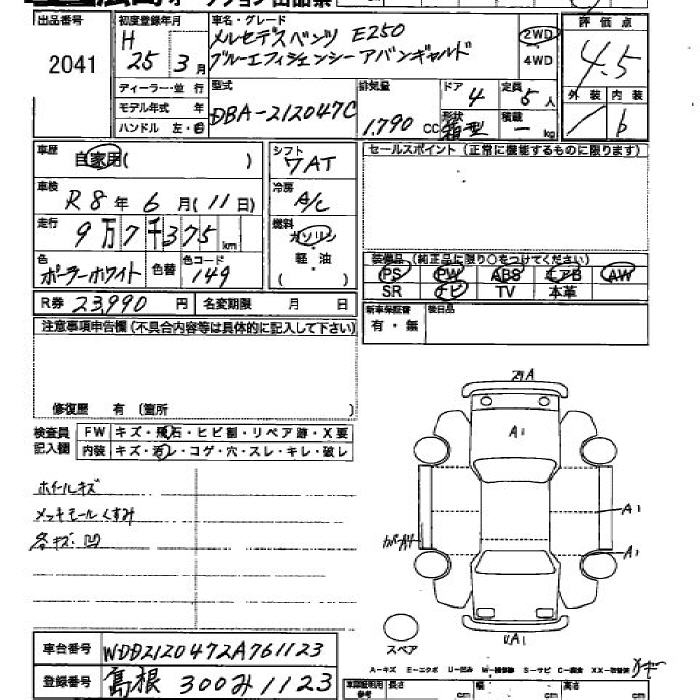 出品番号
2041
初度登録年月
H
25 年 3 月
車名・グレード
メルセデスベンツ E250
ブルーエフィシェンシー アバンギャルド
2WD
4WD
評価点
4.5
外装 内装
/ b
ディーラー・並行
モデル年式 年
ハンドル 左・右
型式
DBA-212047C
排気量
1.790 cc
ドア
4
形状
箱型
定員
5 人
積載
— kg
車歴
自家用( )
シフト
7AT
セールスポイント (正常に機能するものに限ります)
車検
R8 年 6 月 (11日)
冷房
A/C
走行
9万7千375 km
燃料
ガソリン
軽・油
( )
色
ポーラーホワイト
色替
色コード
149
装備品 (純正品に限り○をつけてください)
PS PW ABS エアB AW
SR ナビ TV 本革
R券 23,990 円 名変期限 月 日
新車保証書
有・無
後日品
注意事項申告欄 (不具合内容等は具体的に記入して下さい)
修復歴 有 (箇所 )
検査員
記入欄
FW キズ・飛石・ヒビ割・リペア跡・X要
内装 キズ・汚レ・コゲ・穴・スレ・キレ・破レ
ホイールキズ
メッキモールくすみ
各キズ・凹
A1
A1
A1
スペア
車台番号 WDD2120472A761123
登録番号 島根 300 み 1123
A-キズ E-エクボ U-凹み
長さ cm 幅 cm 高さ cm